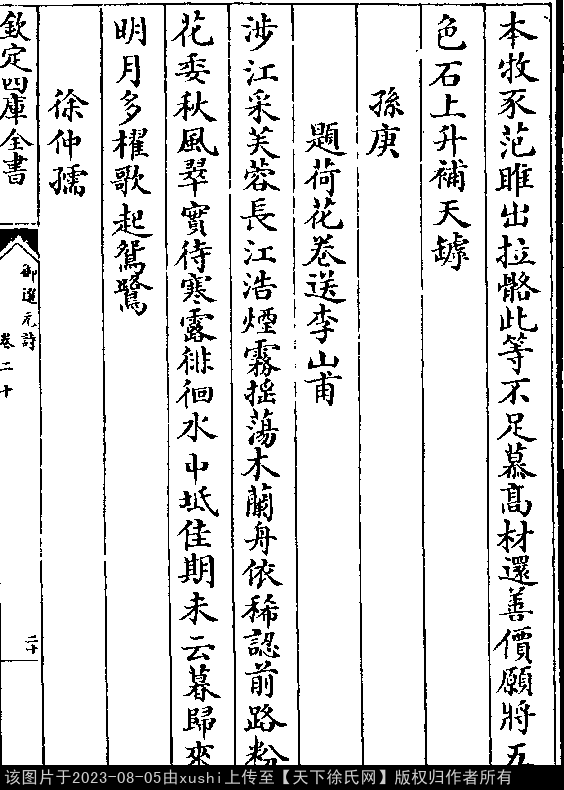 本牧豕范雎出拉骼此等不足慕髙材還善價願將五
色石上升補天罅
孫庚
題荷花卷送李山甫
涉江采芙蓉長江浩煙霧揺蕩木蘭舟依稀認前路粉
花委秋風翠實待寒露徘徊水中坻佳期未云暮歸來
明月多櫂歌起鴛鷺
徐仲孺
欽定四庫全書
御選元詩
卷二十
二十
该图片于2023-08-05由xushi上传至【天下徐氏网】版权归作者所有